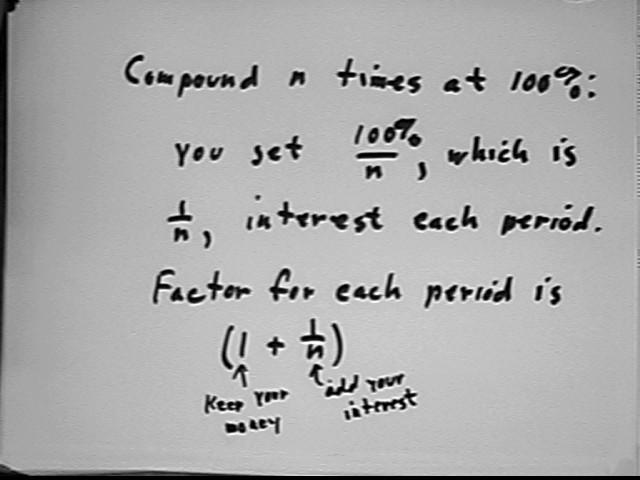 Compound n times at 100%:
you set 100%/n, which is
1/n, interest each period.
Factor for each period is
(1 + 1/n)
Keep your money
add your interest